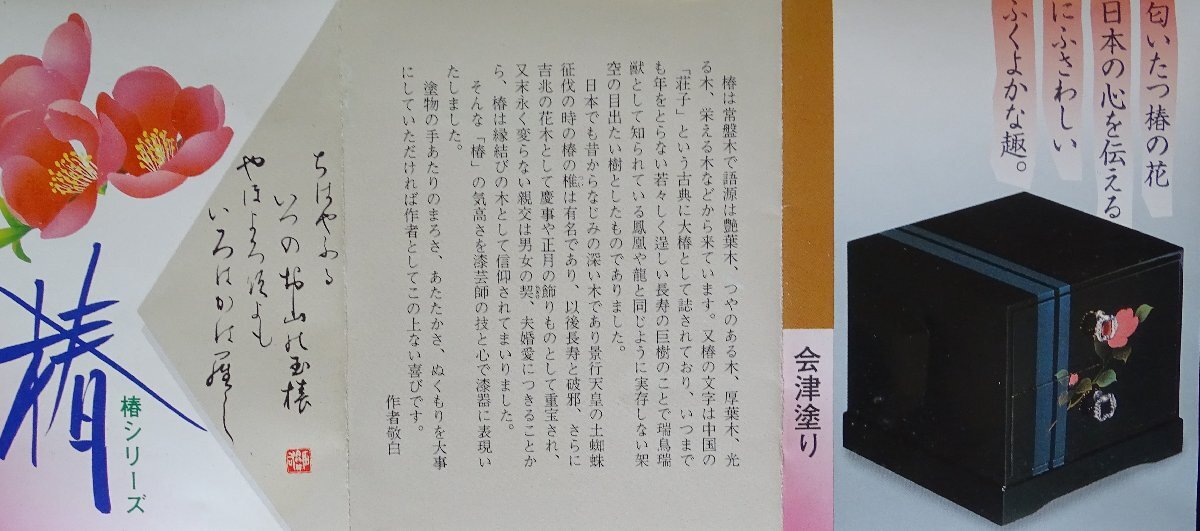 匂いたつ椿の花
日本の心を伝える
にふさわしい
ふくよかな趣。
会津塗り
椿は常盤木で語源は艶葉木、つやのある木、厚葉木、光
る木、栄える木などから来ています。又椿の文字は中国の
「荘子」という古典に大椿として誌されており、いつまで
も年をとらない若々しく逞しい長寿の巨樹のことで瑞鳥瑞
獣として知られている鳳凰や龍と同じように実存しない架
空の目出たい樹としたものでありました。
日本でも昔からなじみの深い木であり景行天皇の土蜘蛛
征伐の時の椿の椎は有名であり、以後長寿と破邪、さらに
吉兆の花木として慶事や正月の飾りものとして重宝され、
又末永く変らない親交は男女の契、夫婚愛につきることか
ら、椿は縁結びの木として信仰されてまいりました。
そんな「椿」の気高さを漆芸師の技と心で漆器に表現い
たしました。
塗物の手あたりのまろさ、あたたかさ、ぬくもりを大事
にしていただければ作者としてこの上ない喜びです。
作者敬白
ちはやふる
いつの お山の玉椿
やほよろづよも
いろはかはらし
椿
椿シリーズ